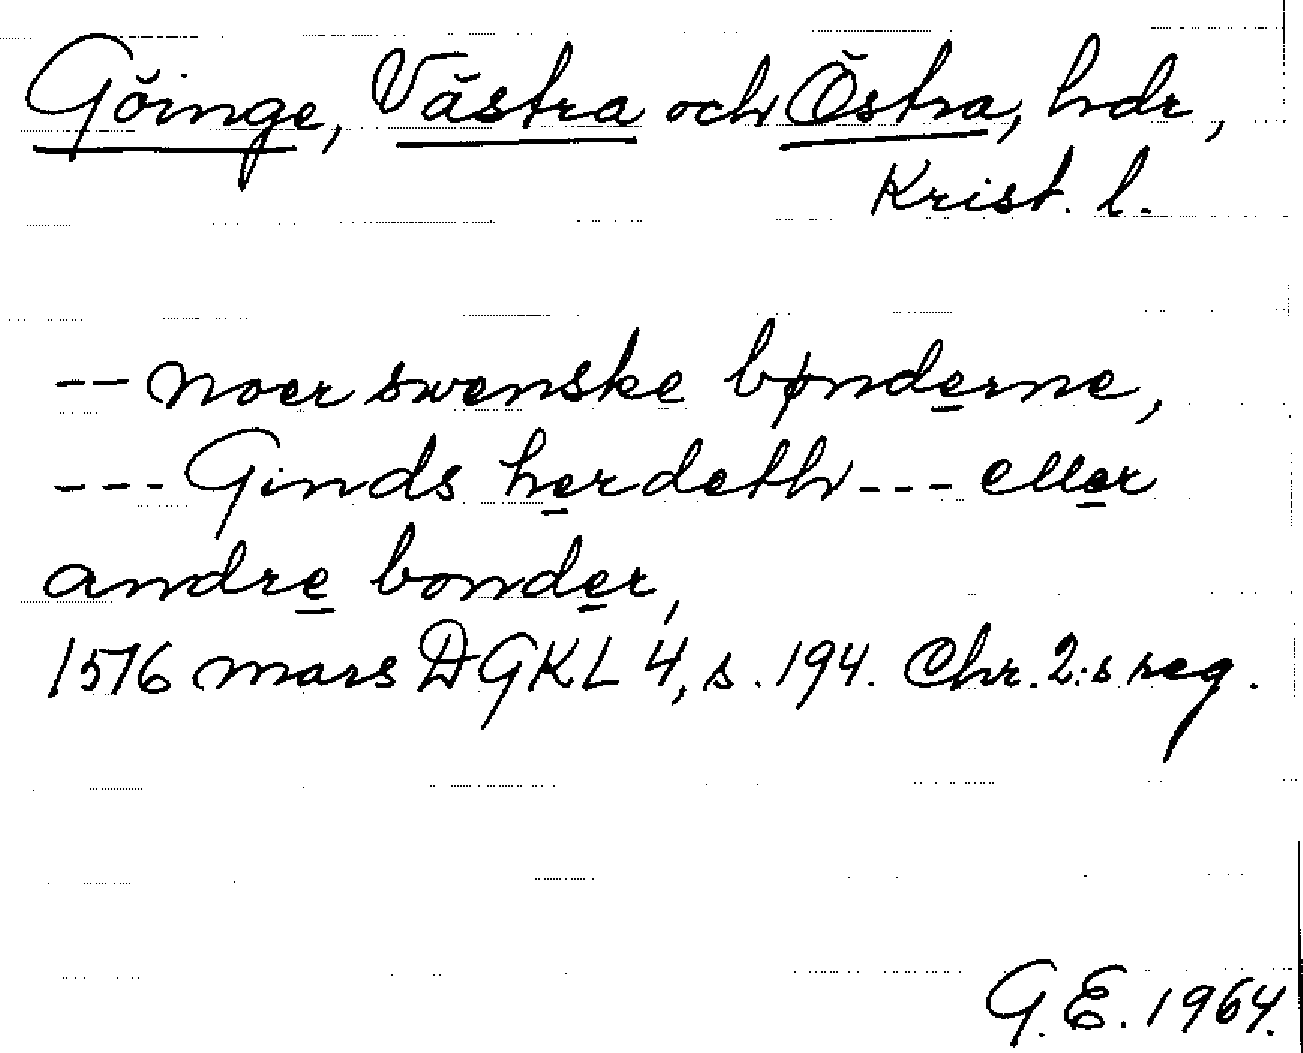 Göinge, Västra och Östra, hdr,
Krist. l.
-- noer swenske bønderne,
--- Ginds herdeth --- eller
andre bonder,
1516 mars DGKL 4, s. 194. Chr. 2:s reg.
G.E. 1964.